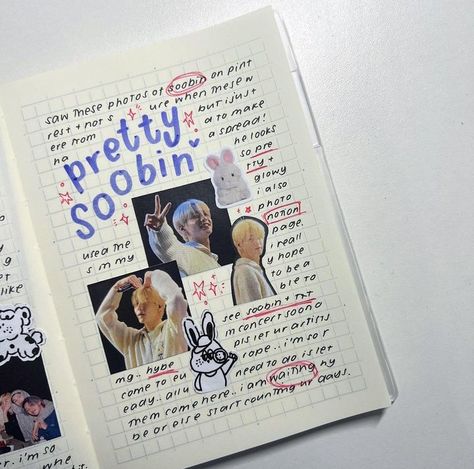 saw these photos of soobin on pint
rest + not s ure when these w
ere from but i just
ha d to make
a spread!
pretty
soobin
he looks
so pre
tty +
glowy
i also
used the photo
s in my notion
page.
i reall
y hope
to be a
ble to
see soobin + txt
in concert soon o
mg.. hybe pls let ur artists
come to eu rope.. i'm so r
eady.. all u need to do is let
them come here.. i am waiting hy
be or else start counting ur days.
y
et
like
r. i'm so
whe